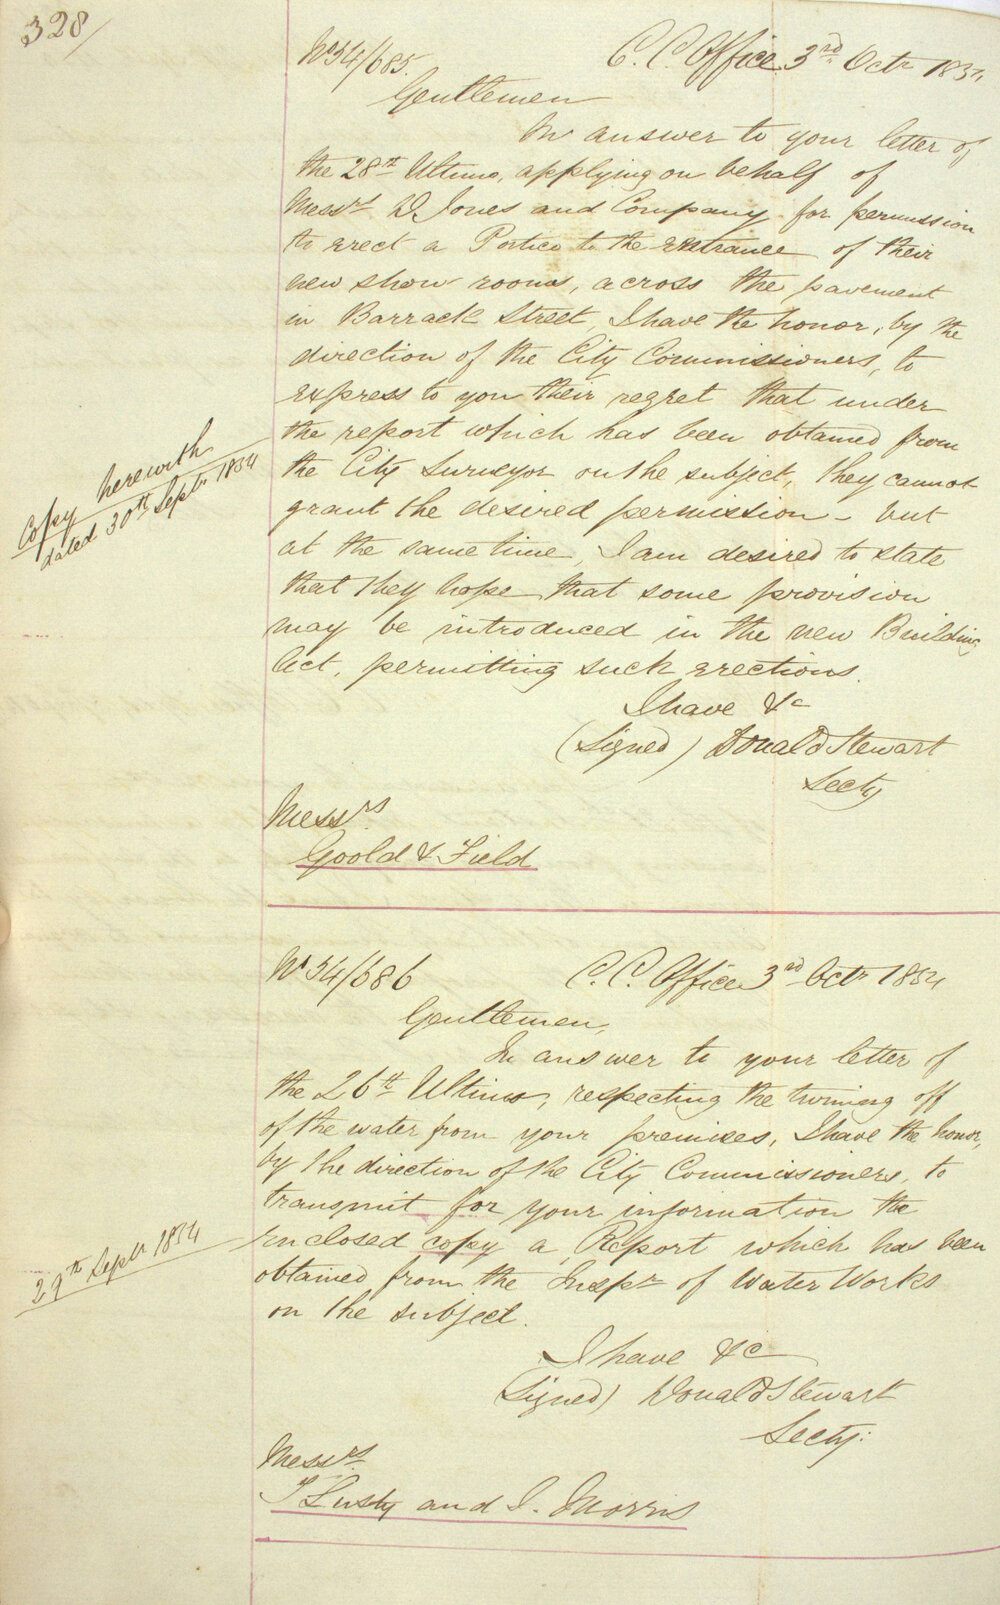 328/
No 54/685.
C. C. Office 3rd Octr 1854
Gentlemen
In answer to your letter of
the 28th Ultimo, applying on behalf of
Messrs D Jones and Company for permission
to erect a Portico to the entrance of their
new show rooms, across the pavement
in Barrack Street, I have the honor, by the
direction of the City Commissioners, to
express to you their regret that under
the report which has been obtained from
Copy herewith
dated 30th Septr 1854
the City Surveyor on the subject, they cannot
grant the desired permission - but
at the same time, I am desired to state
that they hope that some provision
may be introduced in the new Building
Act, permitting such erections.
I have &c
(Signed) Donald Stewart
Secty
Messrs
Goold & Field
No 54/686
C. C. Office 3rd Octr 1854
Gentlemen,
In answer to your letter of
the 26th Ultimo, respecting the turning off
of the water from your premises, I have the honor,
by the direction of the City Commissioners, to
transmit for your information the
29th Septr 1854
enclosed copy a Report which has been
obtained from the Inspr of Water Works
on the subject.
I have &c
(Signed) Donald Stewart
Secty:
Messrs
T Lusty and I. Morris